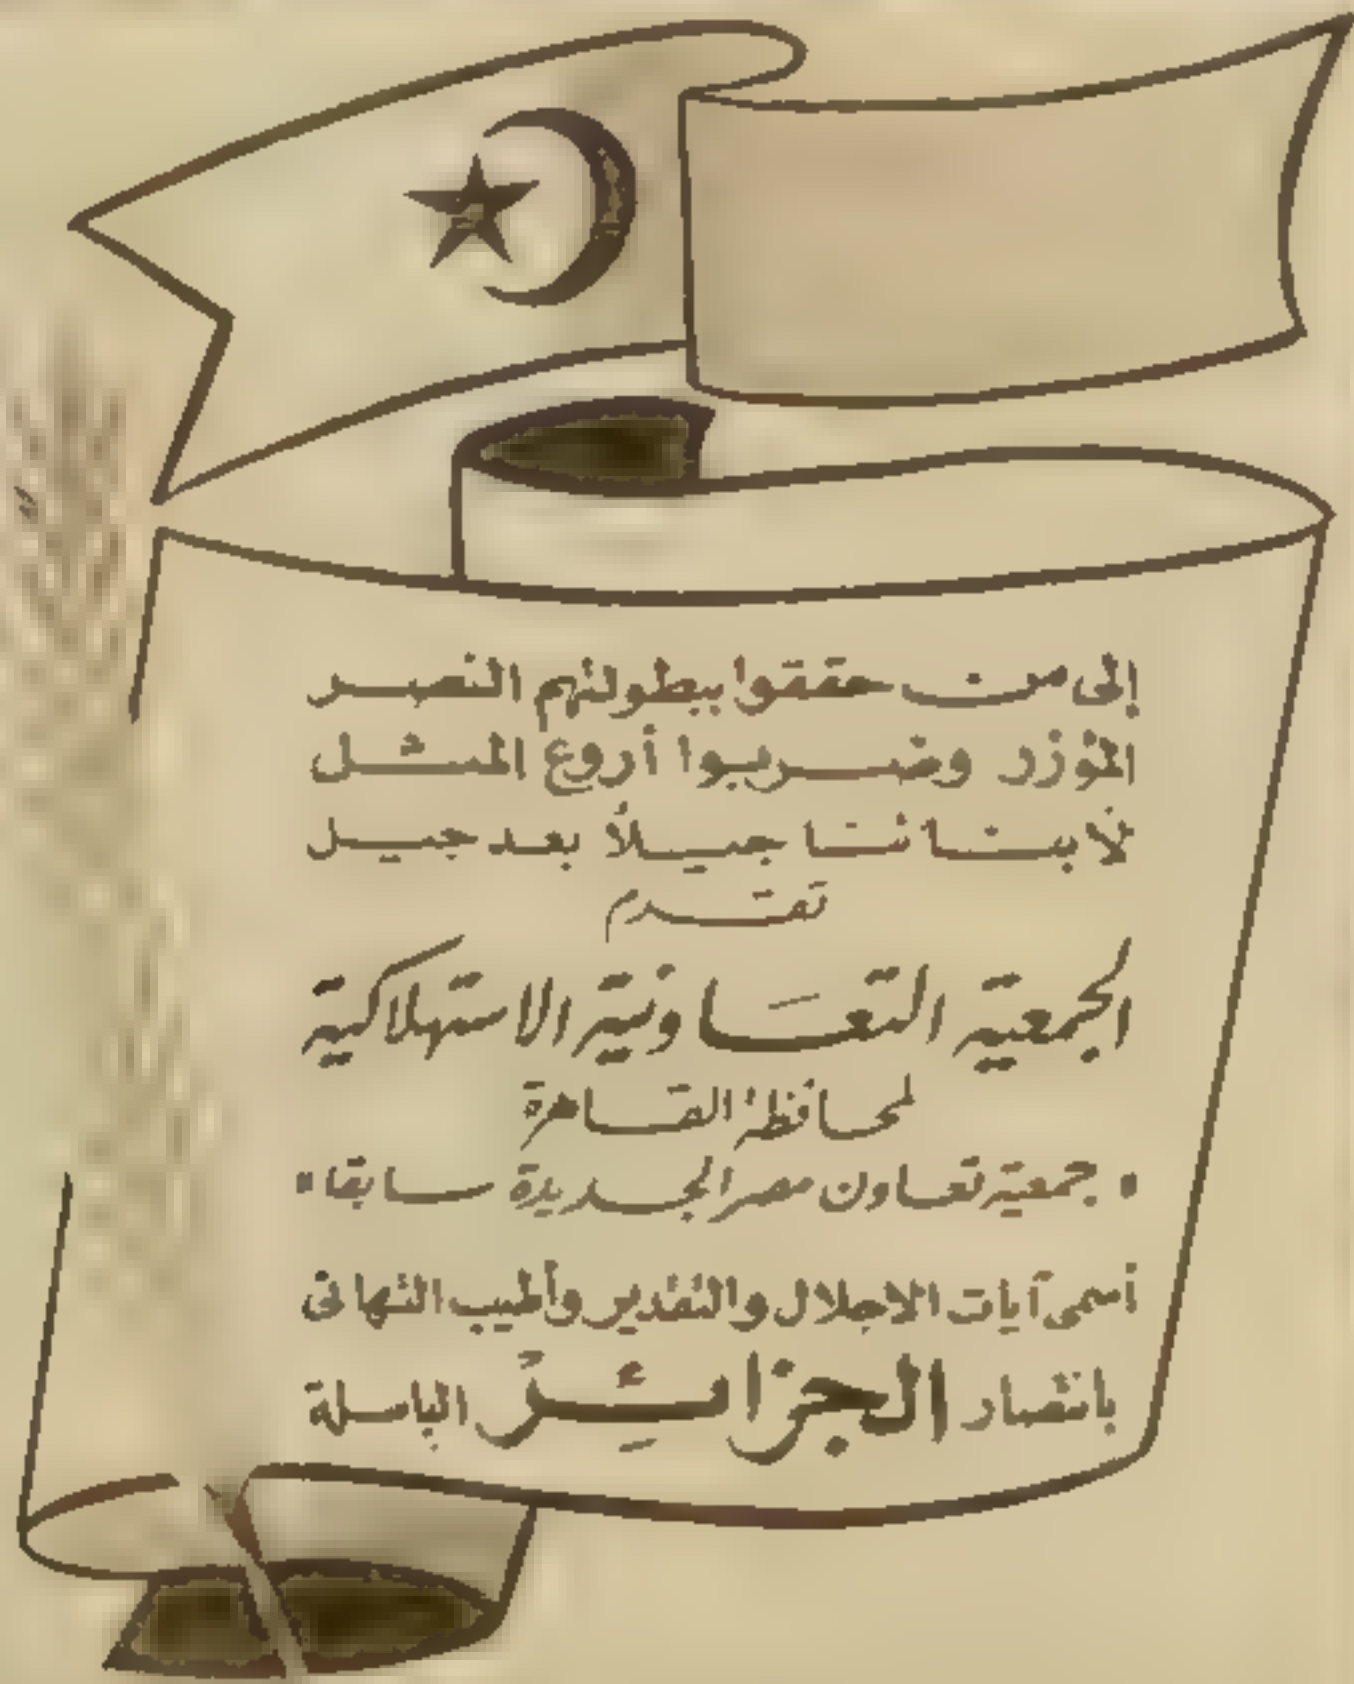 إلى من حققوا ببطولتهم النصر
المؤزر وضربوا أروع المثل
لأبنائنا جيلاً بعد جيل
تقدم
الجمعية التعاونية الاستهلاكية
لمحافظة القاهرة
" جمعية تعاون مصر الجديدة سابقا "
أسمى آيات الاجلال والتقدير وأطيب التهانى
بانتصار الجزائر الباسلة